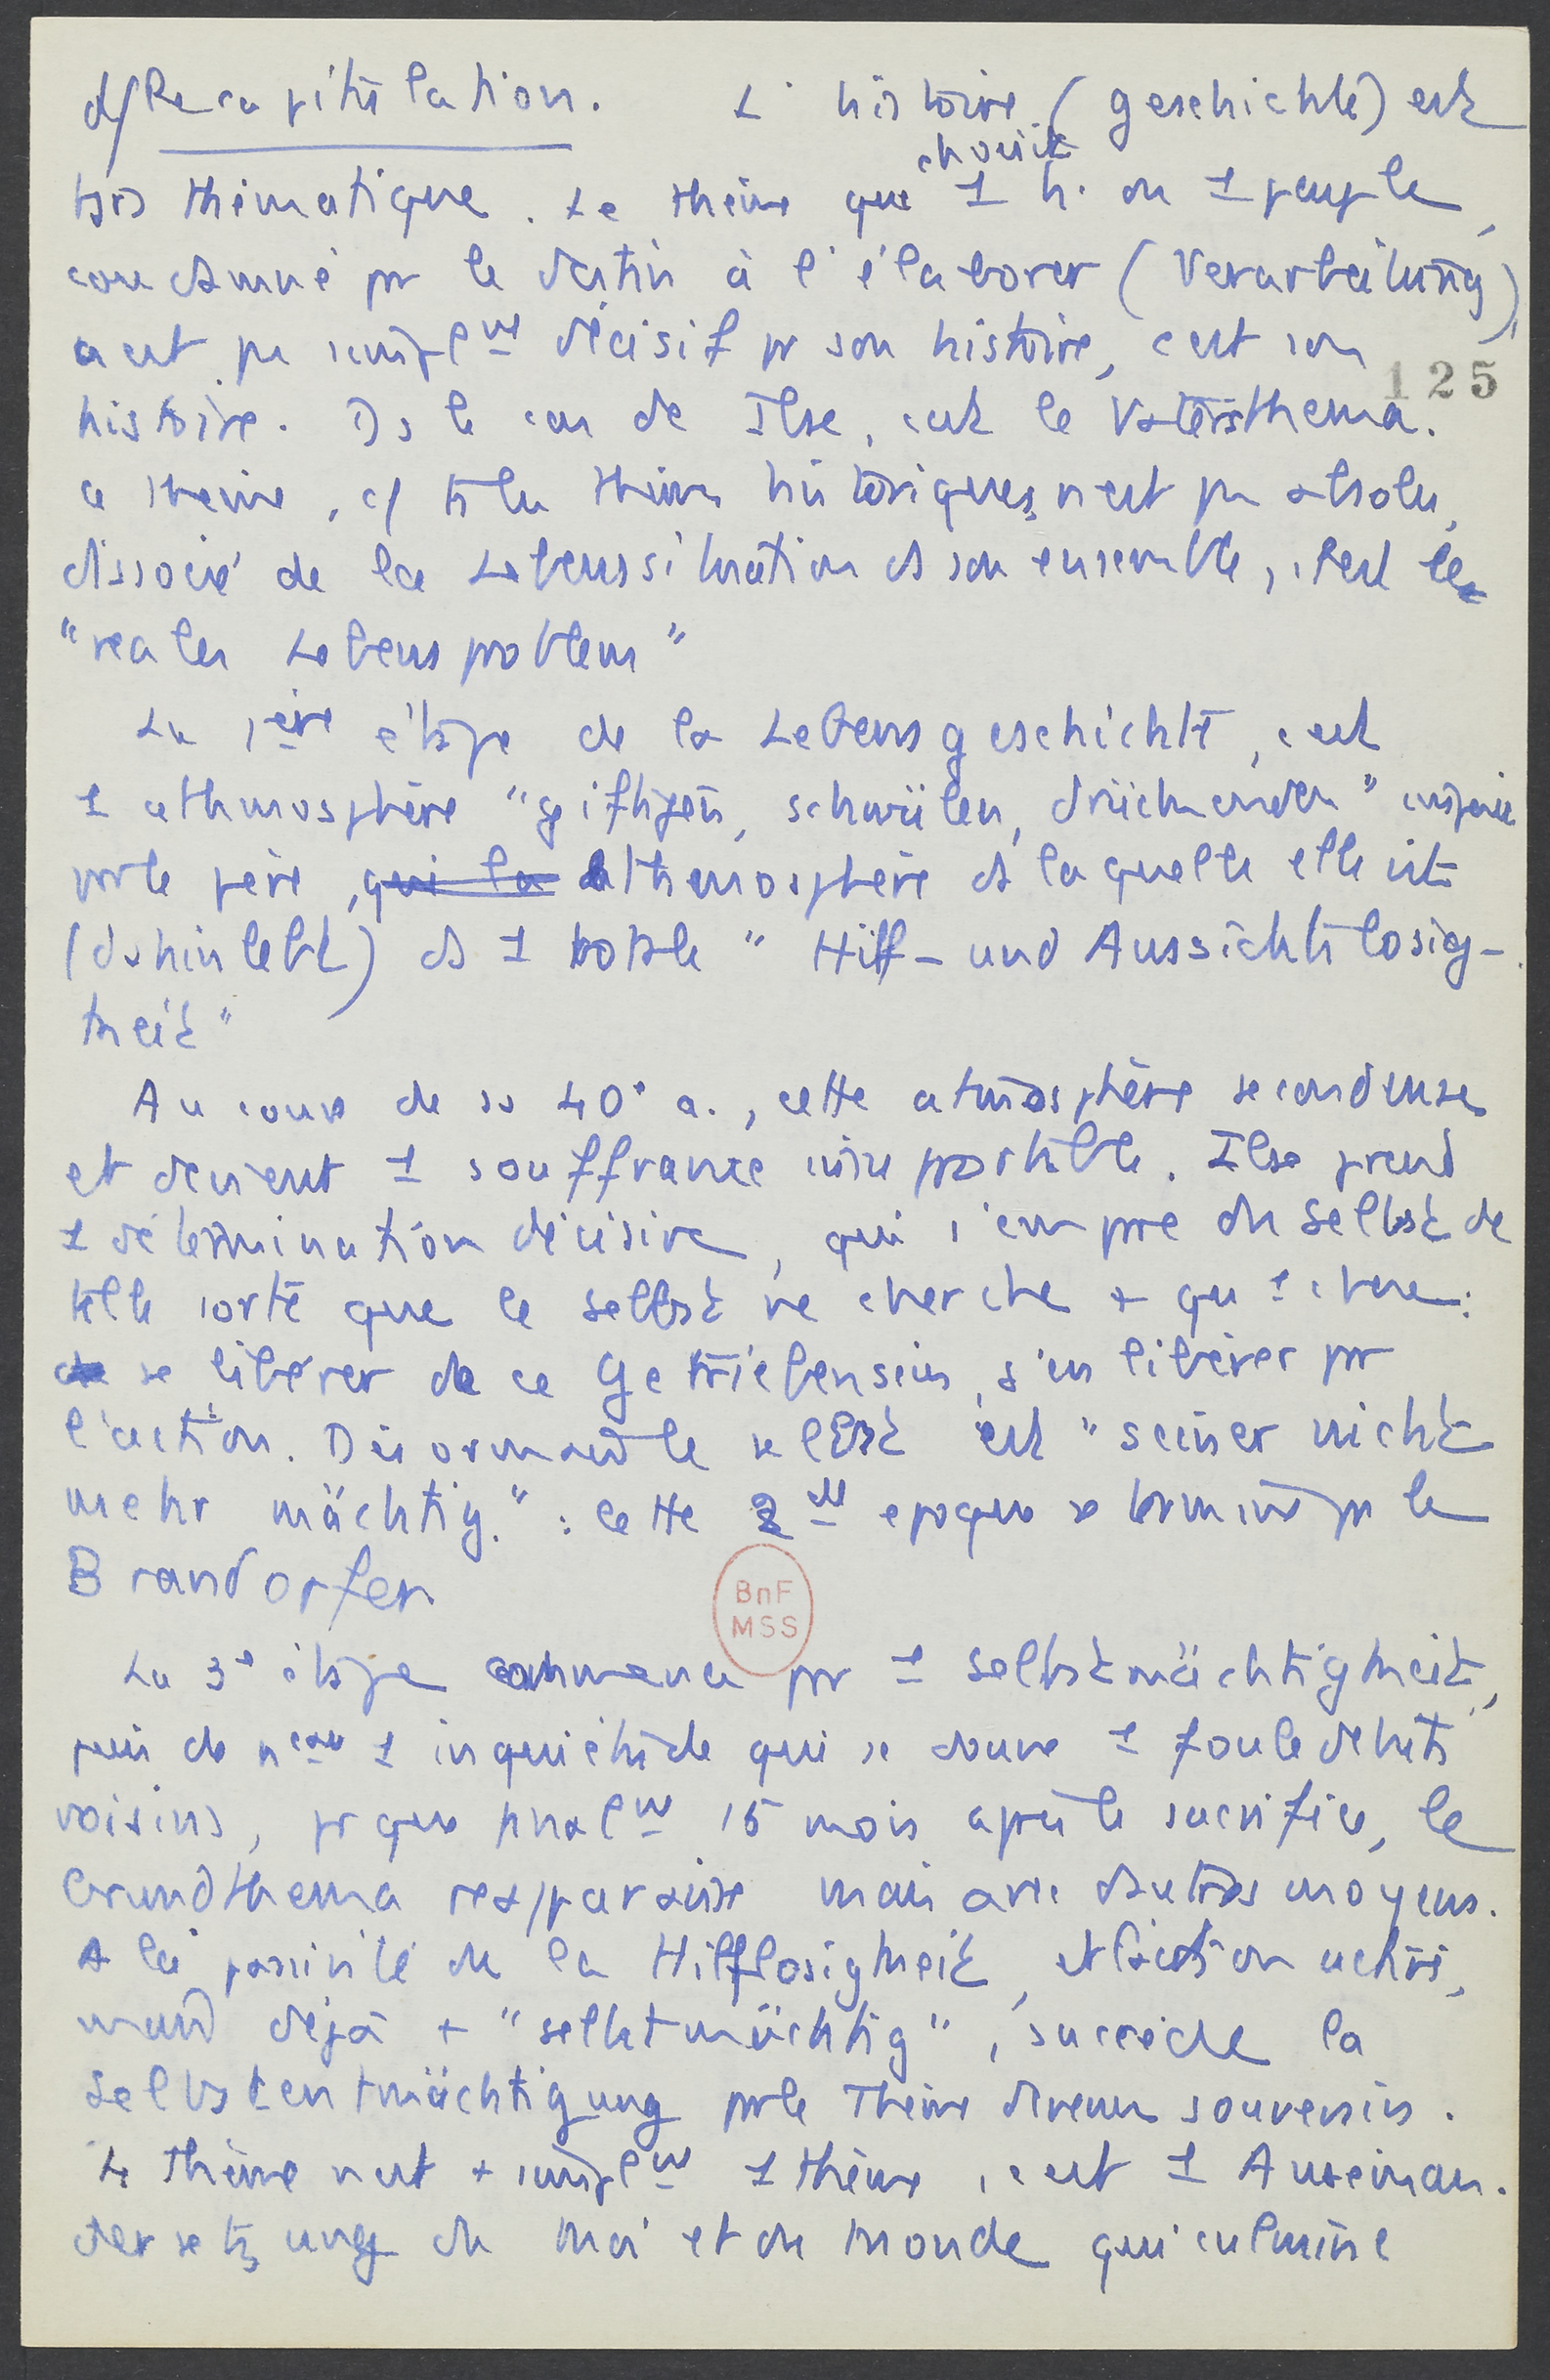 d/ Recapitulation. L'histoire (geschichte) est
tjrs thématique. Le thème que choisit 1 h. ou 1 peuple,
condamné pr le destin à l'élaborer (Verarbeitung),
n'est pas simplmt décisif pr son histoire, c'est son
125
histoire. Ds le cas de Ilse, c'est le Vatersthema.
Ce thème, c/ ts les thèmes historiques, n'est pas absolu,
dissocié de la Lebenssituation ds son ensemble, c'est le
"reales Lebensproblem"
La 1ère étape de la Lebensgeschichte, c'est
1 athmosphère "giftigen, schwülen, drückenden" inspirée
pr le père, qui la athmosphère ds laquelle elle vit
(dahinlebt) ds 1 totale "Hilf- und Aussichtslosig-
keit"
Au cours de sa 40e a., cette atmosphère se condense
et devient 1 souffrance insupportable. Ilse prend
1 détermination décisive, qui s'empare du Selbst de
telle sorte que le Selbst ne cherche + qu'1 chose:
de se libérer de ce Getriebensein, s'en libérer pr
l'action. Désormais le selbst est "seiner nicht
mehr mächtig." : cette 2de epoque se termine pr le
Brandopfer
La 3e étape commence pr 1 Selbstmächtigkeit,
puis de nveau 1 inquiétude qui se donne 1 foule de buts
voisins, pr que finalmt 15 mois après le sacrifice, le
Grundthema réapparaisse mais avec d'autres moyens.
A la passivité de la Hilflosigkeit, et l'action active,
mais déjà + "selbstmächtig", succède la
Selbstentmächtigung pr le Thème devenu souverain.
Le thème n'est + simplmt 1 thème, c'est 1 Auseinan-
dersetzung du Moi et du Monde qui culmine
BnF
MSS